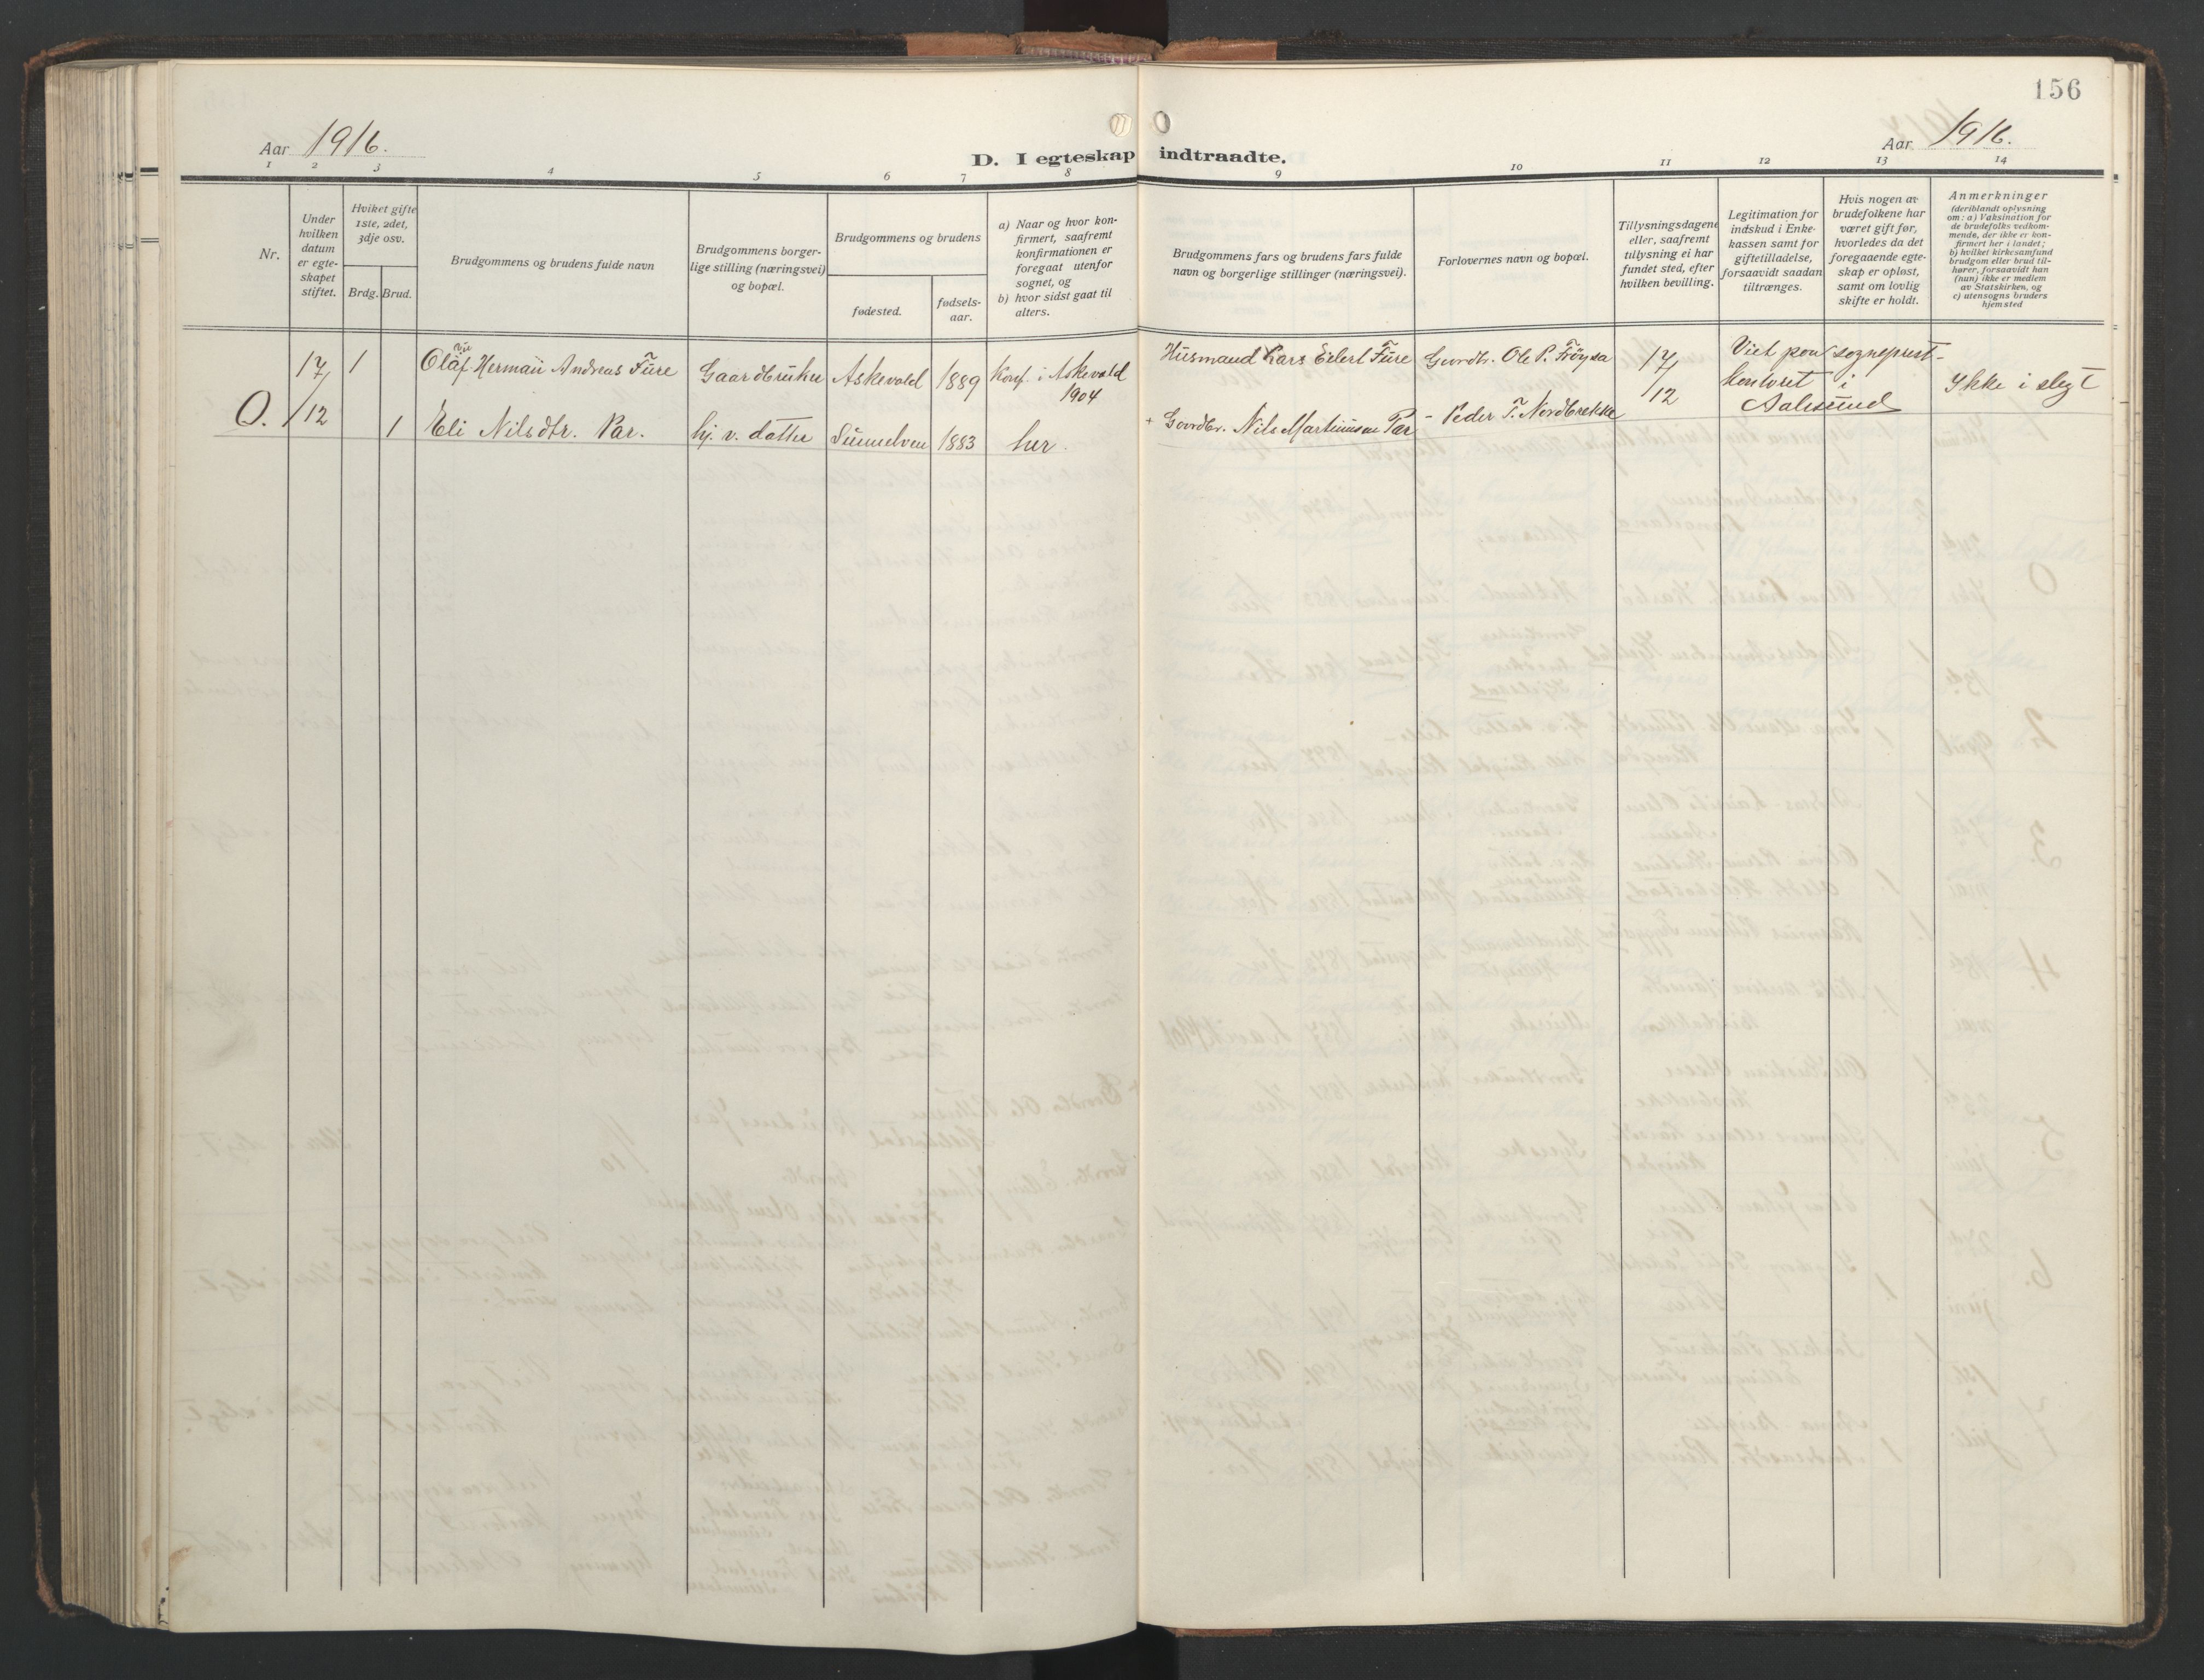 156
Aar 1916.
D. I egteskap indtraadte.
Aar 1916.
1 2 3 4 5 6 7 8 9 10 11 12 13 14
Nr.
Under
hvilken
datum
er egte-
skapet
stiftet.
Hvilket gifte
1ste, 2det,
3dje osv.
Brdg. Brud.
Brudgommens og brudens fulde navn
Brudgommens borger-
lige stilling (næringsvei)
og bopæl.
Brudgommens og brudens
fødested.
fødsels-
aar.
a) Naar og hvor kon-
firmert, saafremt
konfirmationen er
foregaat utenfor
sognet, og
b) hvor sidst gaat til
alters.
Brudgommens fars og brudens fars fulde
navn og borgerlige stillinger (næringsvei).
Forlovernes navn og bopæl.
Tillysningsdagene
eller, saafremt
tillysning ei har
fundet sted, efter
hvilken bevilling.
Legitimation for
indskud i Enke-
kassen samt for
giftetilladelse,
forsaavidt saadan
tiltrænges.
Hvis nogen av
brudefolkene har
været gift før,
hvorledes da det
foregaaende egte-
skap er opløst,
samt om lovlig
skifte er holdt.
Anmerkninger
(deriblandt oplysning
om: a) Vaksination for
de brudefolks vedkom-
mende, der ikke er kon-
firmert her i landet;
b) hvilket kirkesamfund
brudgom eller brud til-
hører, forsaavidt han
(hun) ikke er medlem
av Statskirken, og
c) utensogns bruders
hjemsted
O.
17/12
1
Olaf Herman Andreas Fure
Gaardbruker
Askevold
1889
Konf. i Askevold
1904
Husmand Lars Eilert Fure
Gvrdbr. Ole P. Frøysa
17/12
Viet paa sogneprest-
kontoret i
Aalesund
Ikke i slegt
1
Eli Nilsdtr. Par.
hj. v. datter
Sunnelven
1883
her.
+ Gvrdbr. Nils Martinusen Par
- Peder T. Nordbrekke